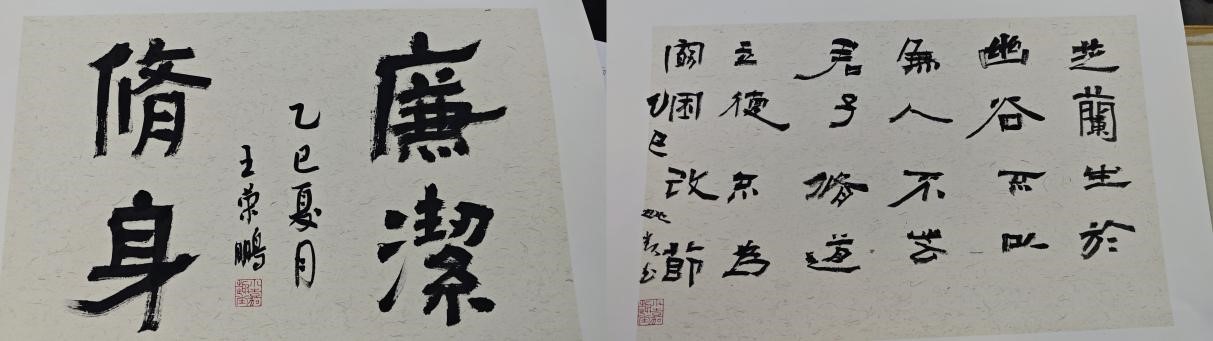 廉潔
乙巳夏月
王荣鹏
脩身
芝蘭生於
幽谷不以
無人不芳
君子脩道
立德不為
窮困改節
乙巳